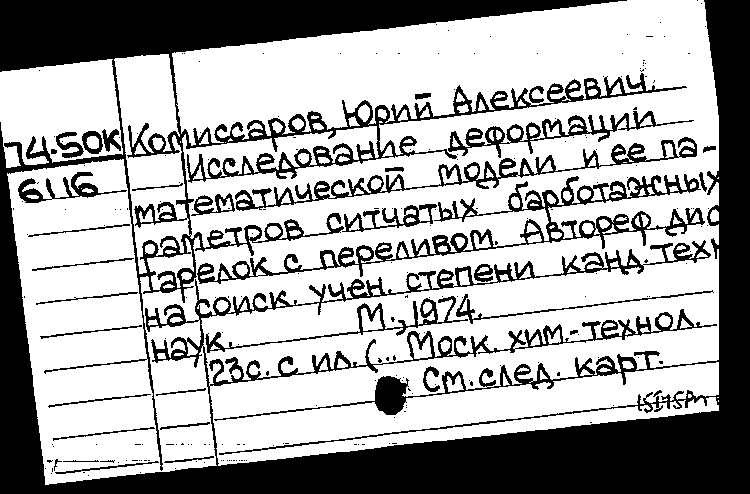 74.50К Комиссаров, Юрий Алексеевич.
6116 Исследование деформации
математической модели и ее па-
раметров ситчатых барботажных
тарелок с переливом. Автореф. дис
на соиск. учен. степени канд. техн
наук. М., 1974.
23с. с ил. (... Моск. хим.-технол.
См. след. карт.